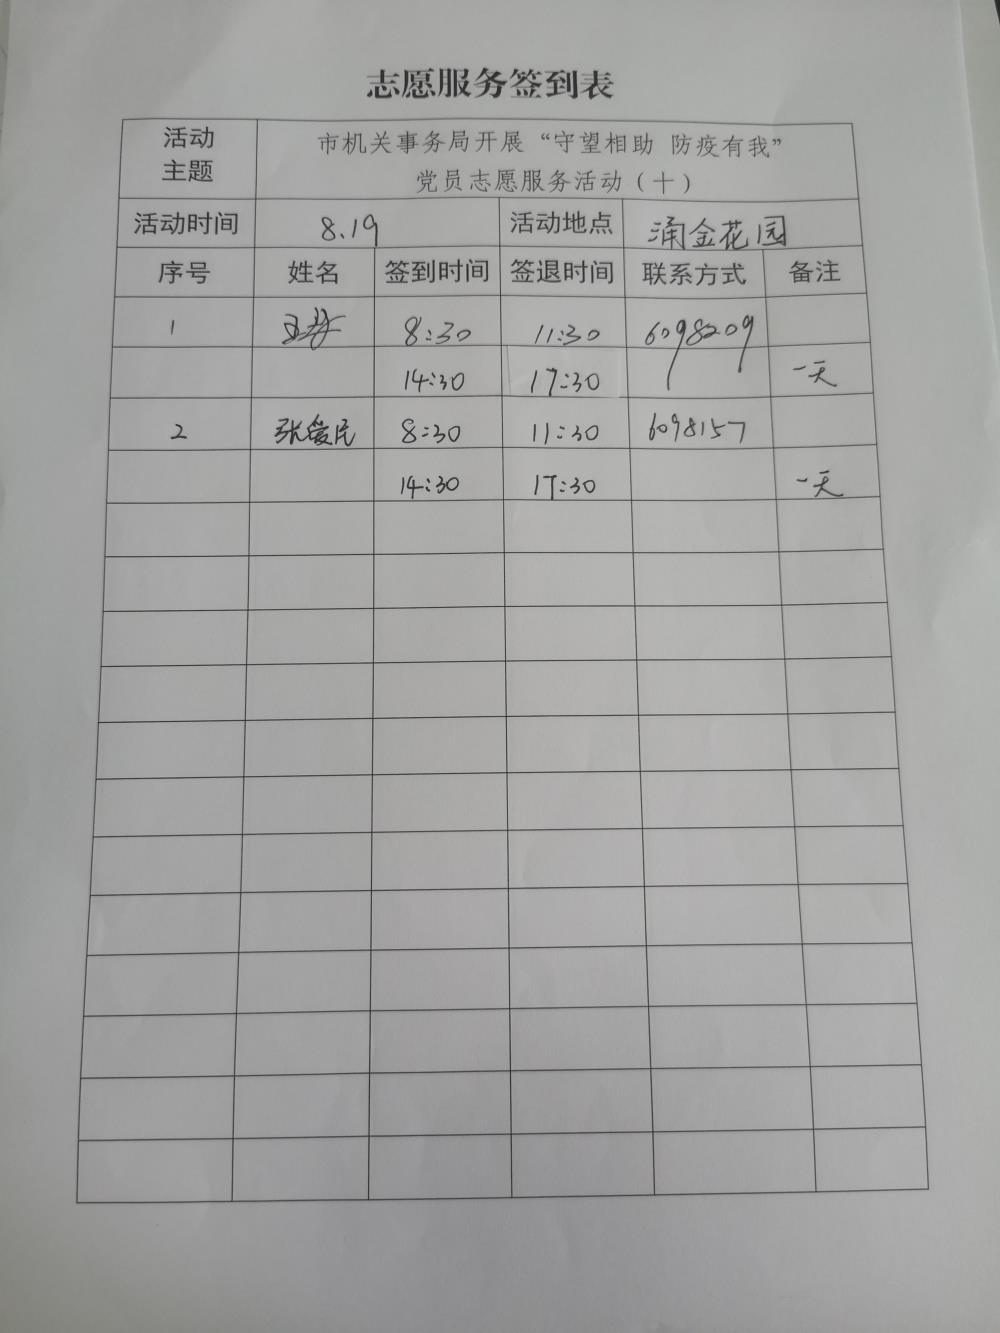 志愿服务签到表
活动主题 市机关事务局开展“守望相助 防疫有我”
党员志愿服务活动（十）
活动时间 8.19 活动地点 涌金花园
序号 姓名 签到时间 签退时间 联系方式 备注
1 8:30 11:30 6098209
14:30 17:30 一天
2 张爱民 8:30 11:30 6098157
14:30 17:30 一天